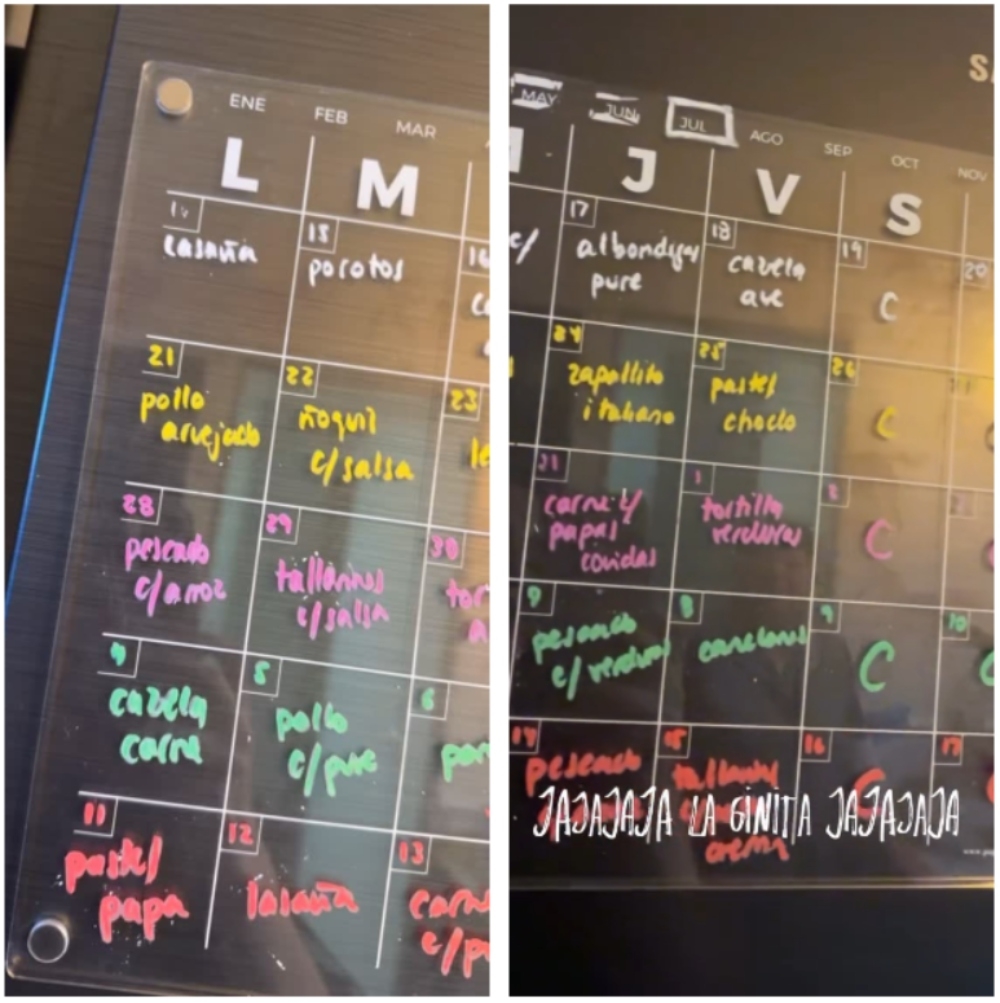 ENE FEB MAR
L M
14 15 16
lasaña porotos
21 22 23
pollo ñoquis
arvejado c/salsa
28 29 30
pescado tallarines
c/arroz c/salsa
4 5 6
cazuela pollo
carne c/pure
11 12 13
pastel lasaña
papa
MAY JUN JUL AGO SEP OCT NOV
J V S
17 18 19 20
c/ albondigas cazuela C
pure ave
24 25 26
zapallito pastel C
italiano choclo
31 1 2
carne c/ tortilla C
papas verduras
cocidas
8 9 10
pescado canelones C
c/verduras
14 15 16 17
pescado tallarines C
JAJAJAJA LA GINITA JAJAJAJA
crema